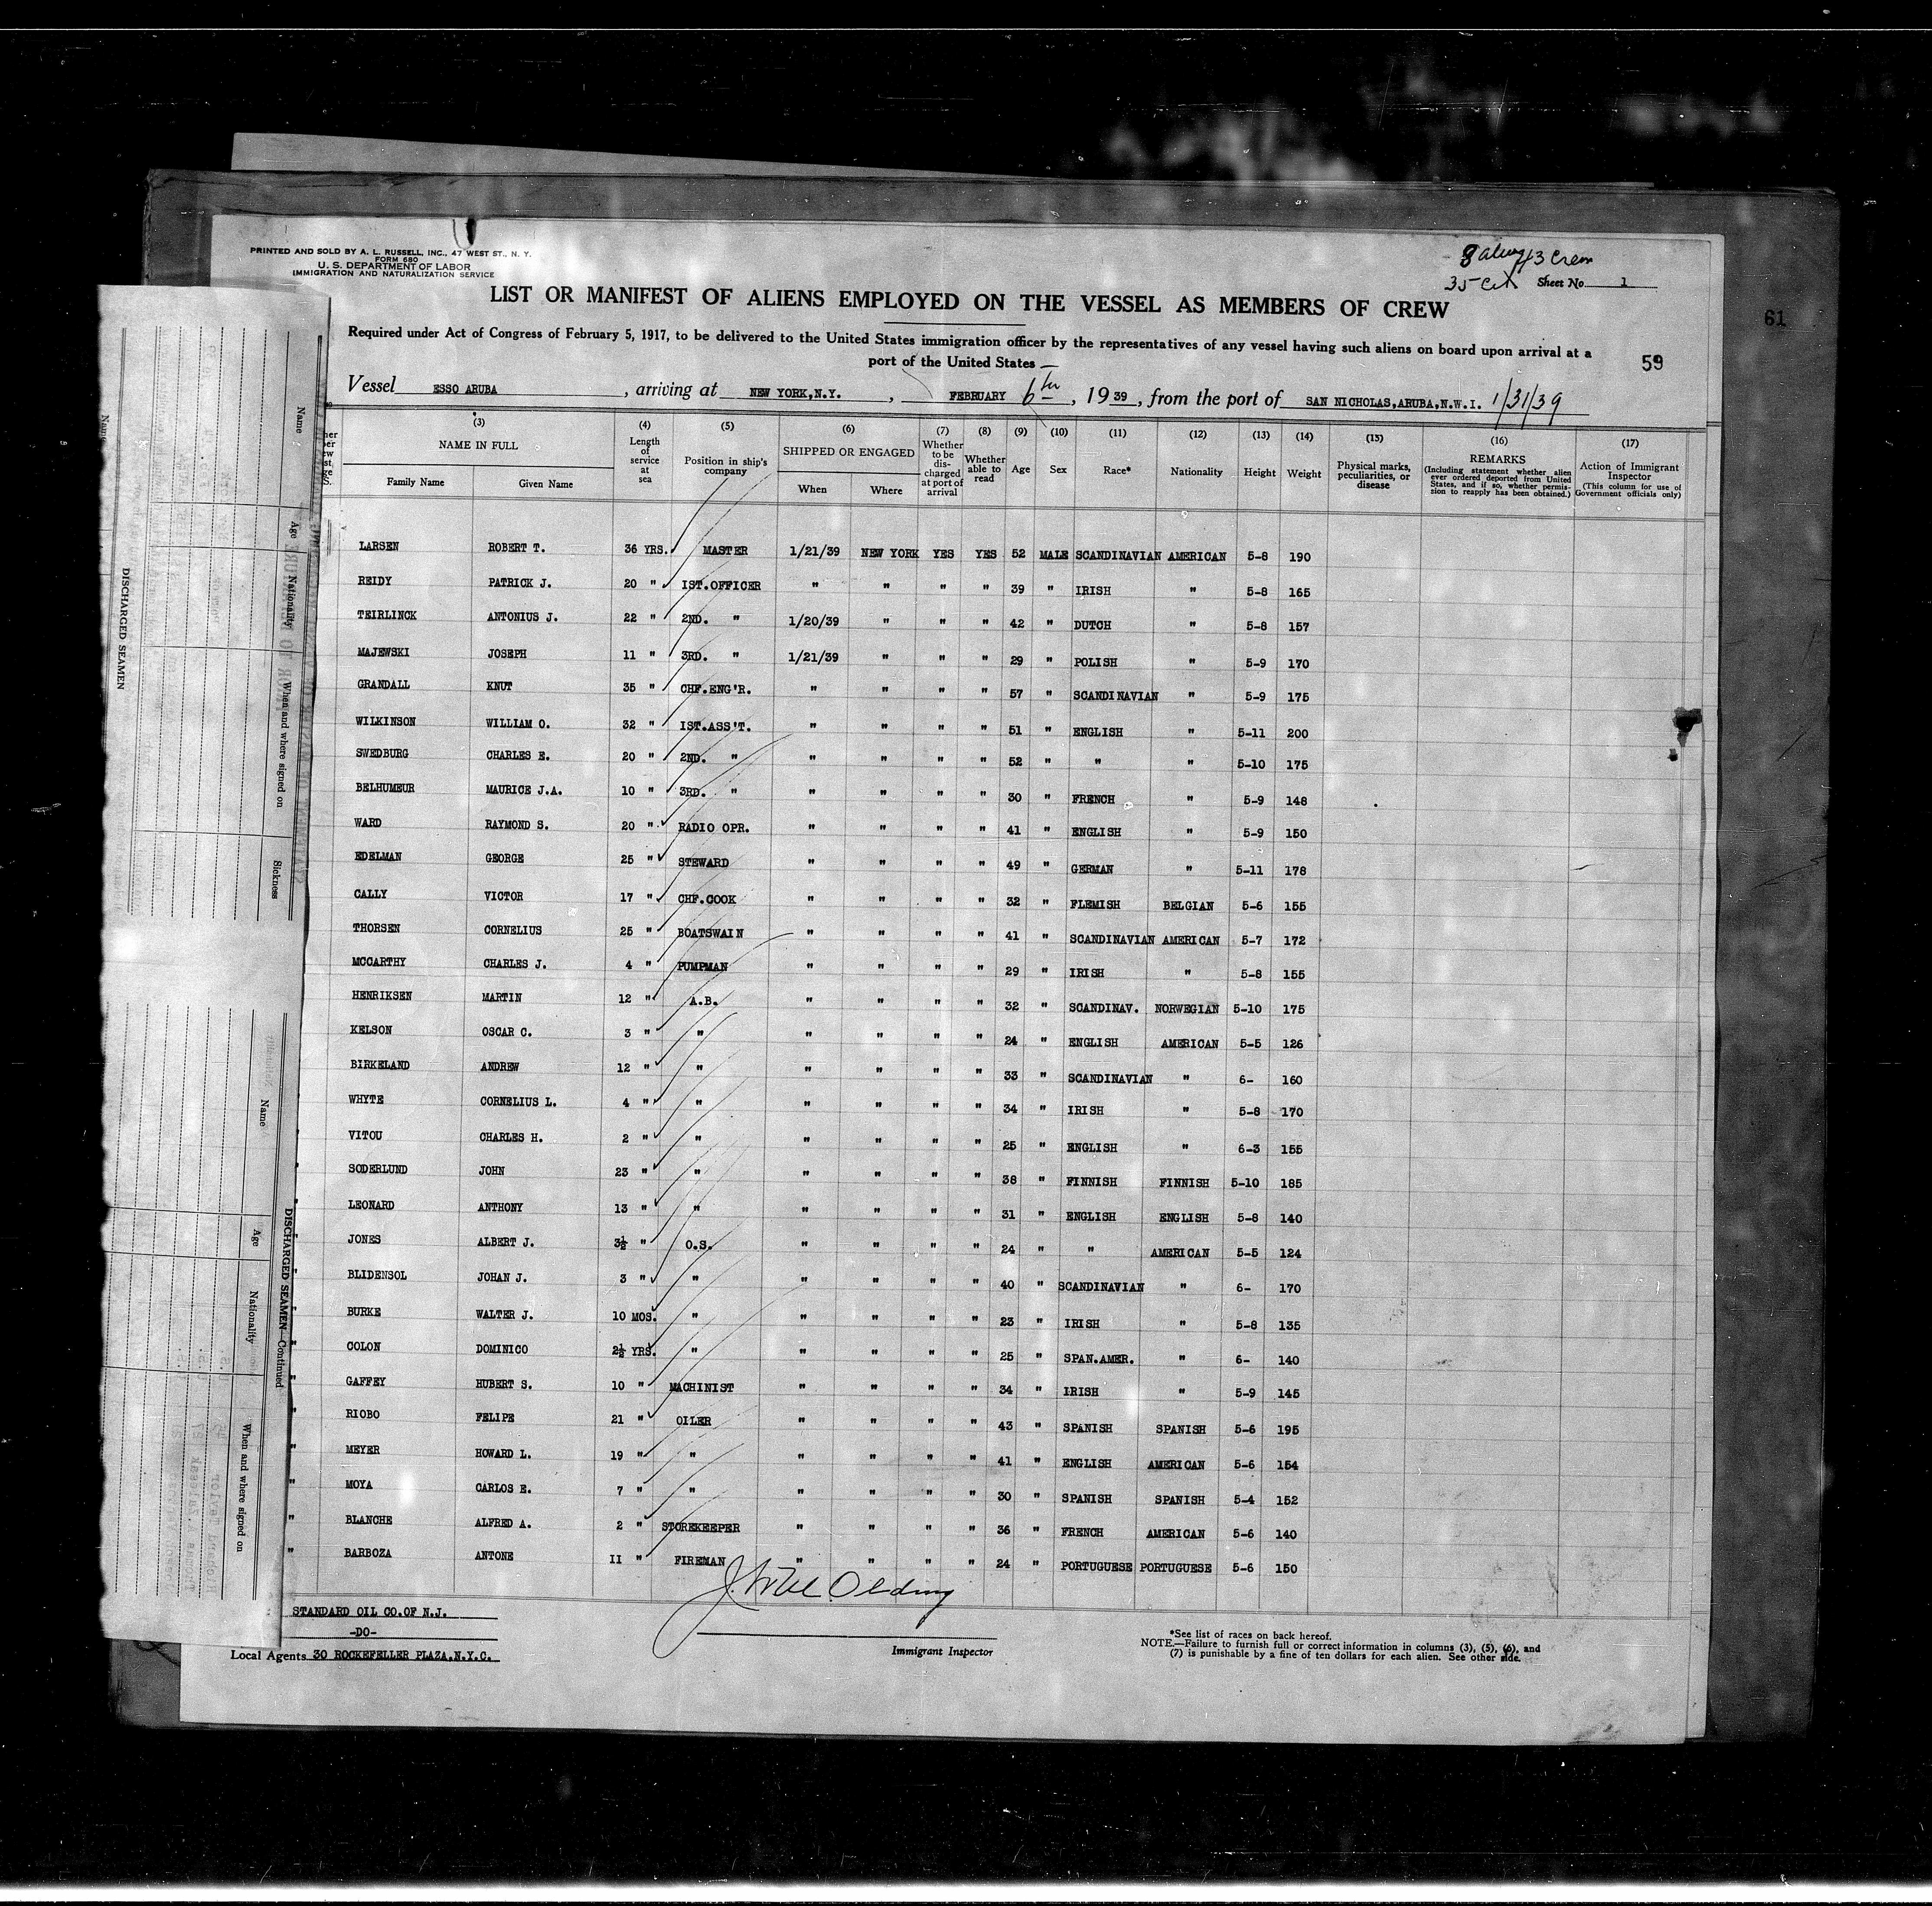 PRINTED AND SOLD BY A. L. RUSSELL, INC., 47 WEST ST., N. Y.
FORM 680
U. S. DEPARTMENT OF LABOR
IMMIGRATION AND NATURALIZATION SERVICE
3 Crew
35 Cit Sheet No 1
LIST OR MANIFEST OF ALIENS EMPLOYED ON THE VESSEL AS MEMBERS OF CREW
61
Required under Act of Congress of February 5, 1917, to be delivered to the United States immigration officer by the representatives of any vessel having such aliens on board upon arrival at a
port of the United States
59
Vessel ESSO ARUBA , arriving at NEW YORK,N.Y. , FEBRUARY 6th , 19 39 , from the port of SAN NICHOLAS,ARUBA,N.W.I. 1/31/39
(3) NAME IN FULL Family Name Given Name
(4) Length of service at sea
(5) Position in ship's company
(6) SHIPPED OR ENGAGED When Where
(7) Whether to be discharged at port of arrival
(8) Whether able to read
(9) Age
(10) Sex
(11) Race*
(12) Nationality
(13) Height
(14) Weight
(15) Physical marks, peculiarities, or disease
(16) REMARKS (Including statement whether alien ever ordered deported from United States, and if so, whether permission to reapply has been obtained.)
(17) Action of Immigrant Inspector (This column for use of Government officials only)
LARSEN ROBERT T. 36 YRS. MASTER 1/21/39 NEW YORK YES YES 52 MALE SCANDINAVIAN AMERICAN 5-8 190
REIDY PATRICK J. 20 " IST.OFFICER " " " " 39 " IRISH " 5-8 165
TEIRLINCK ANTONIUS J. 22 " 2ND. " 1/20/39 " " " 42 " DUTCH " 5-8 157
MAJEWSKI JOSEPH 11 " 3RD. " 1/21/39 " " " 29 " POLISH " 5-9 170
GRANDALL KNUT 35 " CHF.ENG'R. " " " " 57 " SCANDINAVIAN " 5-9 175
WILKINSON WILLIAM O. 32 " IST.ASS'T. " " " " 51 " ENGLISH " 5-11 200
SWEDBURG CHARLES E. 20 " 2ND. " " " " " 52 " " " 5-10 175
BELHUMEUR MAURICE J.A. 10 " 3RD. " " " " " 30 " FRENCH " 5-9 148
WARD RAYMOND S. 20 " RADIO OPR. " " " " 41 " ENGLISH " 5-9 150
EDELMAN GEORGE 25 " STEWARD " " " " 49 " GERMAN " 5-11 178
CALLY VICTOR 17 " CHF.COOK " " " " 32 " FLEMISH BELGIAN 5-6 155
THORSEN CORNELIUS 25 " BOATSWAIN " " " " 41 " SCANDINAVIAN AMERICAN 5-7 172
MCCARTHY CHARLES J. 4 " PUMPMAN " " " " 29 " IRISH " 5-8 155
HENRIKSEN MARTIN 12 " A.B. " " " " 32 " SCANDINAV. NORWEGIAN 5-10 175
KELSON OSCAR C. 3 " " " " " " 24 " ENGLISH AMERICAN 5-5 126
BIRKELAND ANDREW 12 " " " " " " 33 " SCANDINAVIAN " 6- 160
WHYTE CORNELIUS L. 4 " " " " " " 34 " IRISH " 5-8 170
VITOU CHARLES H. 2 " " " " " " 25 " ENGLISH " 6-3 155
SODERLUND JOHN 23 " " " " " " 38 " FINNISH FINNISH 5-10 185
LEONARD ANTHONY 13 " " " " " " 31 " ENGLISH ENGLISH 5-8 140
JONES ALBERT J. 3½ " O.S. " " " " 24 " " AMERICAN 5-5 124
BLIDENSOL JOHAN J. 3 " " " " " " 40 " SCANDINAVIAN " 6- 170
BURKE WALTER J. 10 MOS. " " " " " 23 " IRISH " 5-8 135
COLON DOMINICO 2½ YRS. " " " " " 25 " SPAN.AMER. " 6- 140
GAFFEY HUBERT S. 10 " MACHINIST " " " " 34 " IRISH " 5-9 145
RIOBO FELIPE 21 " OILER " " " " 43 " SPANISH SPANISH 5-6 195
MEYER HOWARD L. 19 " " " " " " 41 " ENGLISH AMERICAN 5-6 154
MOYA CARLOS E. 7 " " " " " " 30 " SPANISH SPANISH 5-4 152
BLANCHE ALFRED A. 2 " STOREKEEPER " " " " 36 " FRENCH AMERICAN 5-6 140
BARBOZA ANTONE II " FIREMAN " " " " 24 " PORTUGUESE PORTUGUESE 5-6 150
STANDARD OIL CO.OF N.J.
-DO-
Local Agents 30 ROCKEFELLER PLAZA,N.Y.C.
Olding
Immigrant Inspector
*See list of races on back hereof.
NOTE.—Failure to furnish full or correct information in columns (3), (5), (6), and
(7) is punishable by a fine of ten dollars for each alien. See other side.
DISCHARGED SEAMEN
Name
Age
Nationality
When and where signed on
Sickness
DISCHARGED SEAMEN—Continued
Name
Age
Nationality
When and where signed on